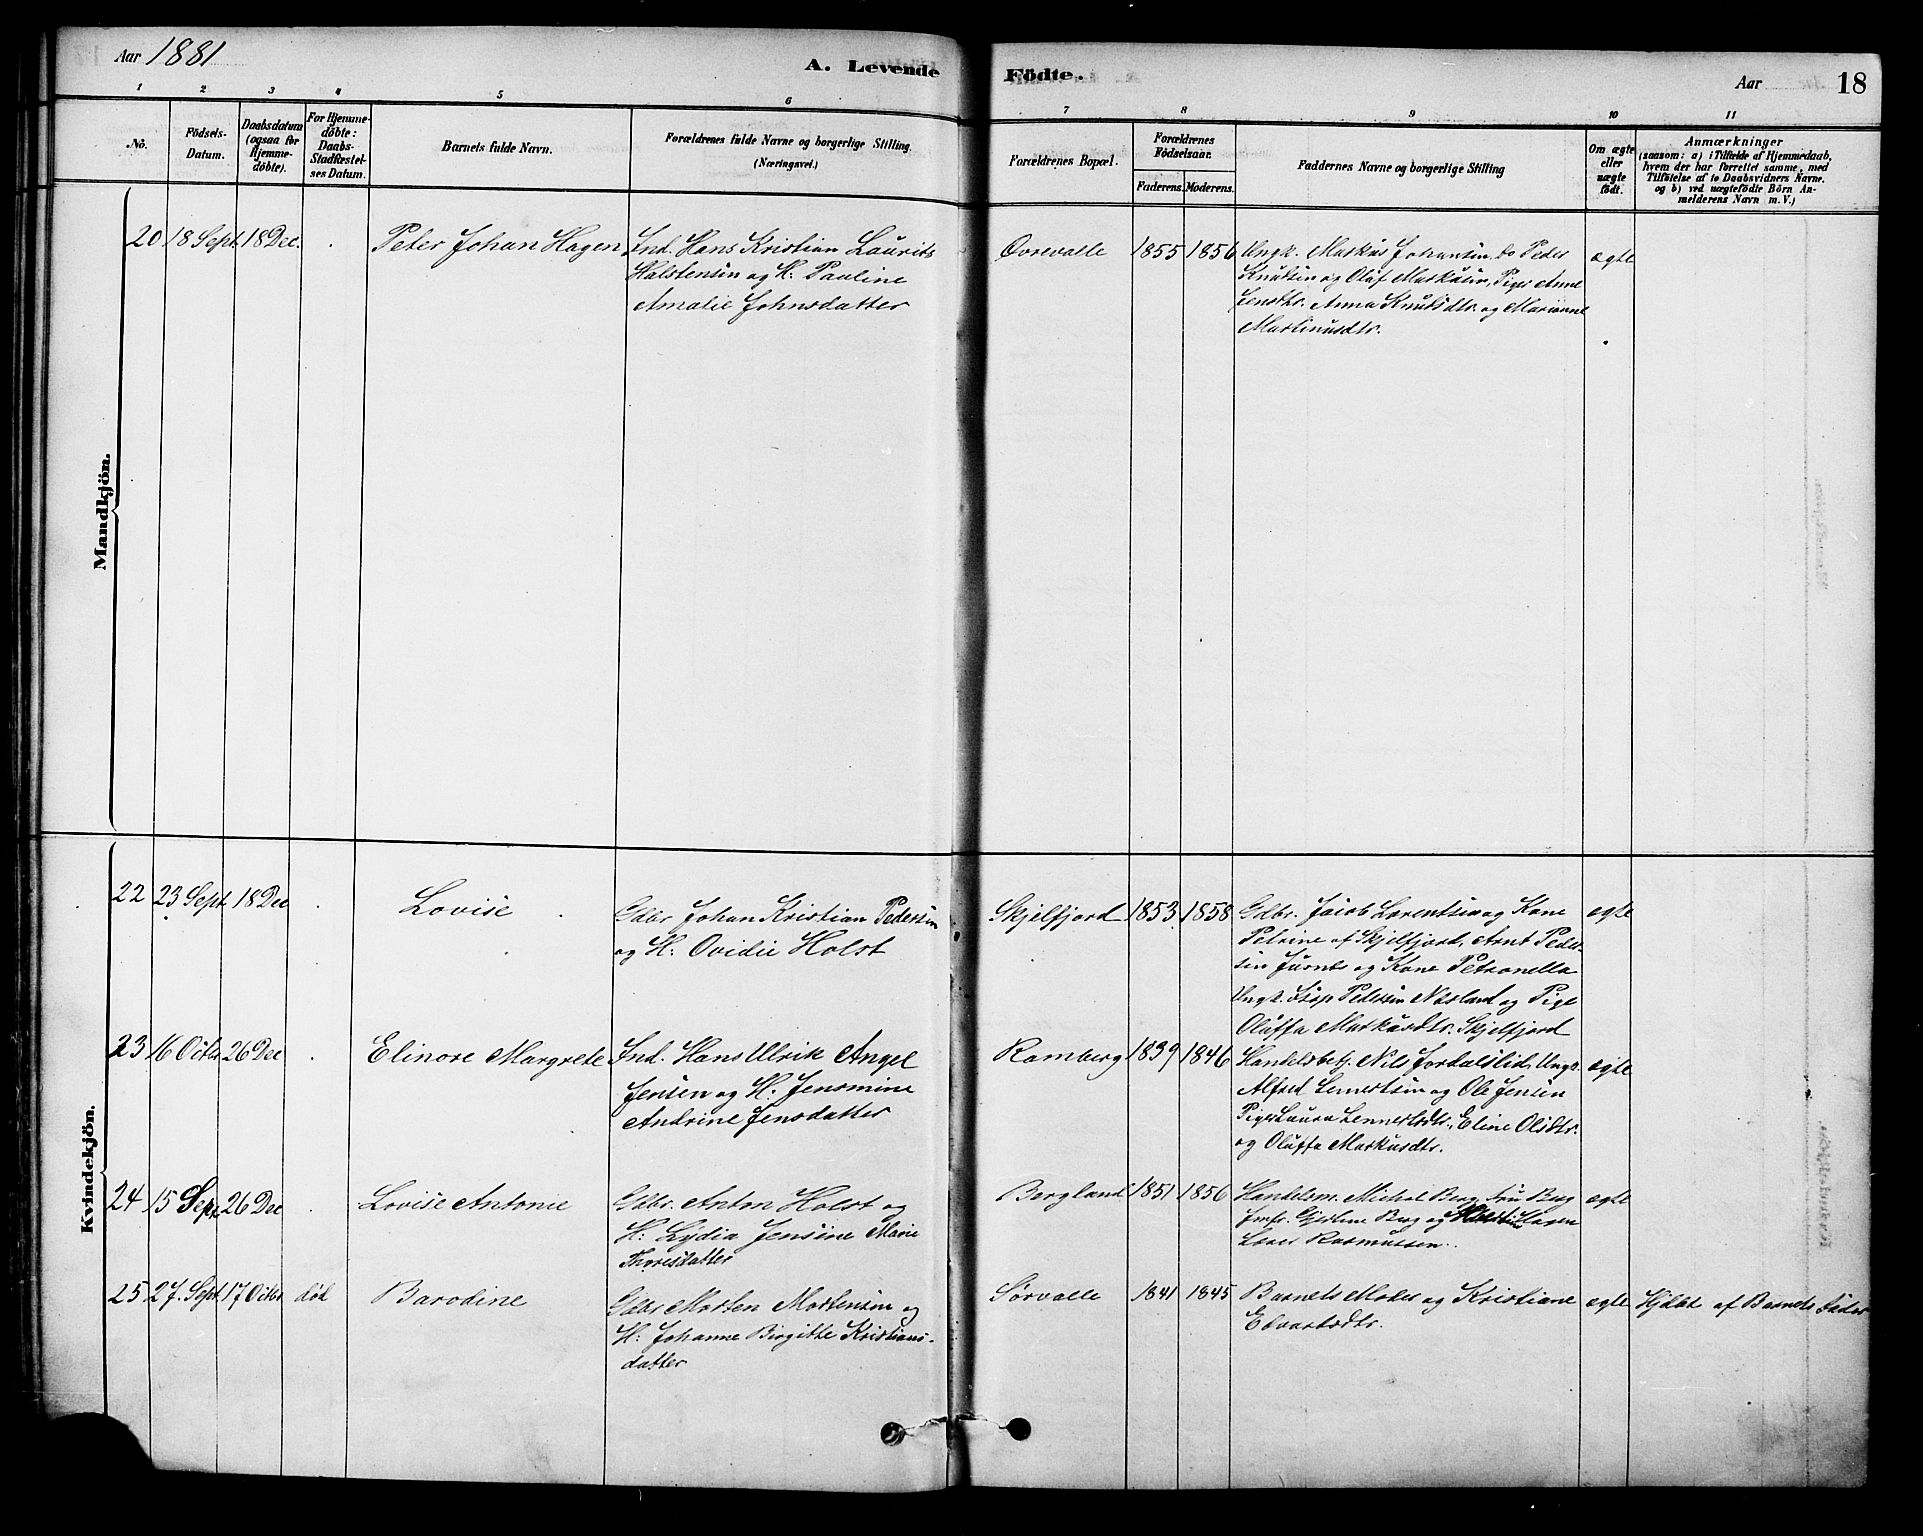 Aar 1881
A. Levende
Födte.
Aar
18
1 2 3 4 5 6 7 8 9 10 11
No.
Födsels-
Datum.
Daabsdatum
(ogsaa for
Hjemme-
døbte).
For Hjemme-
døbte:
Daabs-
Stadfæstel-
ses Datum.
Barnets fulde Navn.
Forældrenes fulde Navne og borgerlige Stilling.
(Næringsvei.)
Forældrenes Bopæl.
Forældrenes
Födselsaar.
Faderens. Moderens.
Faddernes Navne og borgerlige Stilling
Om ægte
eller
uægte
født.
Anmærkninger
(saasom: a) i Tilfælde af Hjemmedaab,
hvem der har forrettet samme, med
Tilføielse af to Daabsvidners Navne.
og b) ved uægtefødte Börn An-
melderens Navn m.V.)
Mandkjön.
20 18 Sept. 18 Dec. Peter Johan Hagen
Ind. Hans Kristian Laurits
Halstensen og H: Pauline
Amalie Johnsdatter
Ovrevalle 1855 1856
Ungk. Markus Johansen, do Peder
Knutsen og Oluf Markusen, Piger Anne
Jensdtr. Anna Knutsdtr. og Marianne
Martinusdtr.
ægte
Kvindekjön.
22 23 Sept. 18 Dec Lovise
Gdbr. Johan Kristian Pedersen
og H: Ovidie Holst
Skjelfjord 1853 1858
Gdbr. Jacob Lorentsen og Kone
Petrine af Skjelfjord, Arnt Peder-
sen og Kone Petronella
Ungk. Pedersen Næsland og Pige
Oluffa Markusdtr. Skjelfjord
ægte
23 16 Octbr 26 Dec Elinore Margrete
Ind. Hans Ulrik Angel
Jensen og H: Jensmine
Andrine Jensdatter
Ramberg 1839 1846
Handelsbetj. Nils Ungk.
Alfred Lennertsen og Ole Jensen
Piger Laura Lennertsdtr., Eline Olsdtr.
og Oluffa Markusdtr.
ægte
24 15 Sept. 26 Dec Lovise Antonie
Gdbr. Anton Holst og
H: Lydia Jensine Marie
Thoresdatter
Bergland 1851 1856
Handelsm. Michal Berg, Fru Berg
Jmfr. Berg og
Rasmussen.
ægte
25 27. Sept. 17 Octbr. död Barodine
Gdbr Morten Mortensen og
H: Johanne Birgitte Kristians-
datter
Sørvalle 1841 1845
Barnets Moder og Kristiane
Edvartsdtr.
ægte
Hjdbt af Barnets Fader